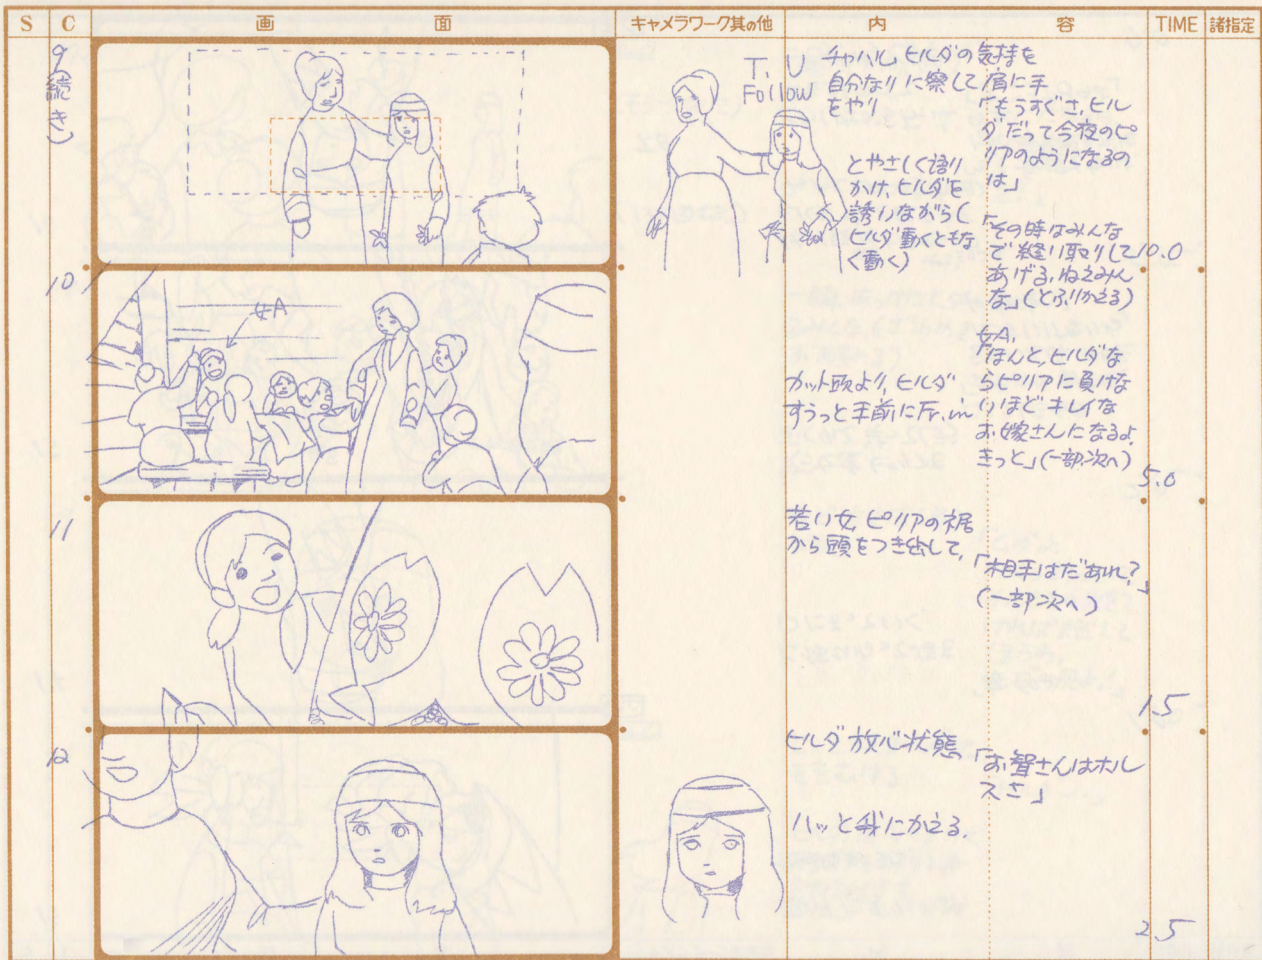 S C 画 面 キャメラワーク其の他 内 容 TIME 諸指定
9
(続き)
T. U
Follow
チャハル、ヒルダの気持を
自分なりに察して肩に手
をやり
「もうすぐさ、ヒル
ダだって今夜のピ
リアのようになるの
は」
とやさしく語り
かけ、ヒルダを
誘いながら(
ヒルダ動くともな
く動く)
「その時はみんな
で縫い取りして
あげる、ねえみん
な」(とふりかえる)
10.0
10
女A
カット頭より、ヒルダ
すうっと手前にFr. in
女A、
「ほんと、ヒルダな
らピリアに負けな
いほどキレイな
お嫁さんになるよ、
きっと」(一部次へ)
5.0
11
若い女、ピリアの裾
から頭をつき出して、
「相手はだあれ?」
(一部次へ)
1.5
12
ヒルダ放心状態、
「お聟さんはホル
スさ」
ハッと我にかえる。
2.5